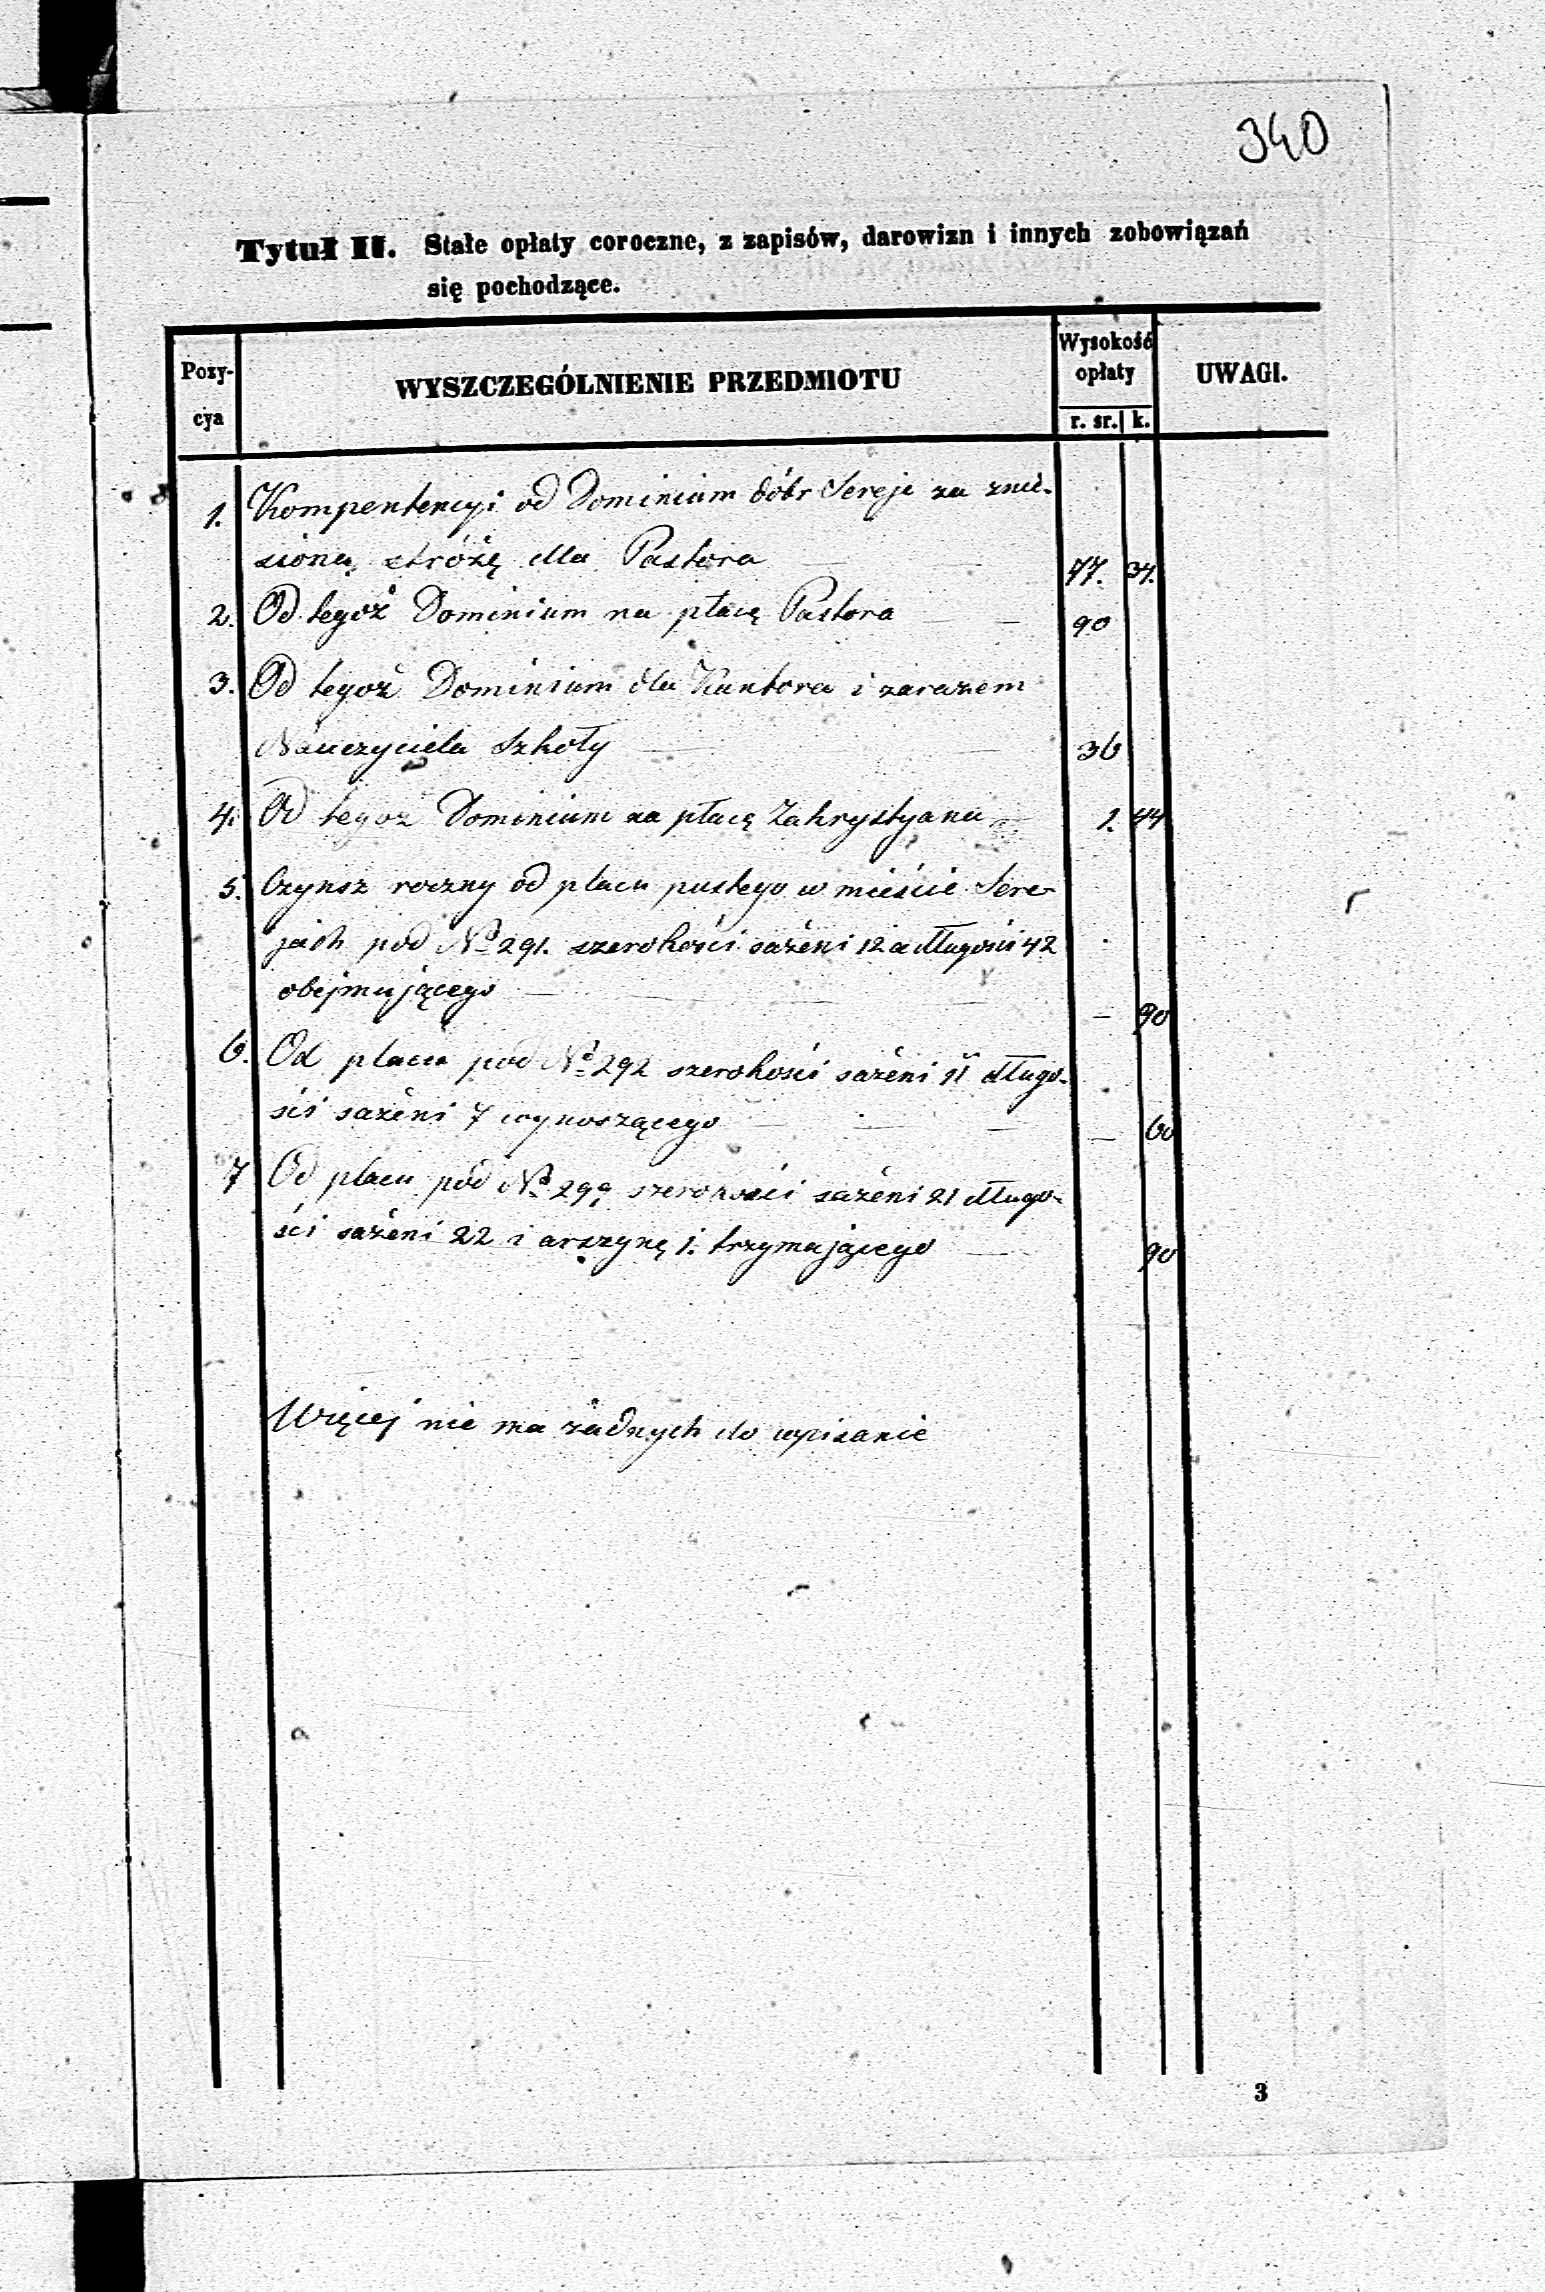 340
Tytuł II. Stałe opłaty coroczne, z zapisów, darowizn i innych zobowiązań
się pochodzące.
Pozy-
cya
WYSZCZEGÓLNIENIE PRZEDMIOTU
Wysokość
opłaty
r. sr. k.
UWAGI.
1. Kompentencyi od Dominium dóbr Sereje za znie-
sioną stróżę dla Pastora 77. 37.
2. Od tegoż Dominium na płacę Pastora 90
3. Od tegoż Dominium dla Kantora i zarazem
Nauczyciela Szkoły 36
4. Od tegoż Dominium na płacę Zakrystyana 1. 44
5. Czynsz roczny od placu pustego w mieście Sere-
jach pod No 291. szerokości sażeni 12 a długości 42
obejmującego — 90
6. Od placu pod No 292 szerokości sażeni 11 długo-
ści sażeni 7 wynoszącego — 60
7 Od placu pod No 299 szerokości sażeni 21 długo-
ści sażeni 22 i arszynę 1. trzymającego 90
Więcej nie ma żadnych do wpisanie
3